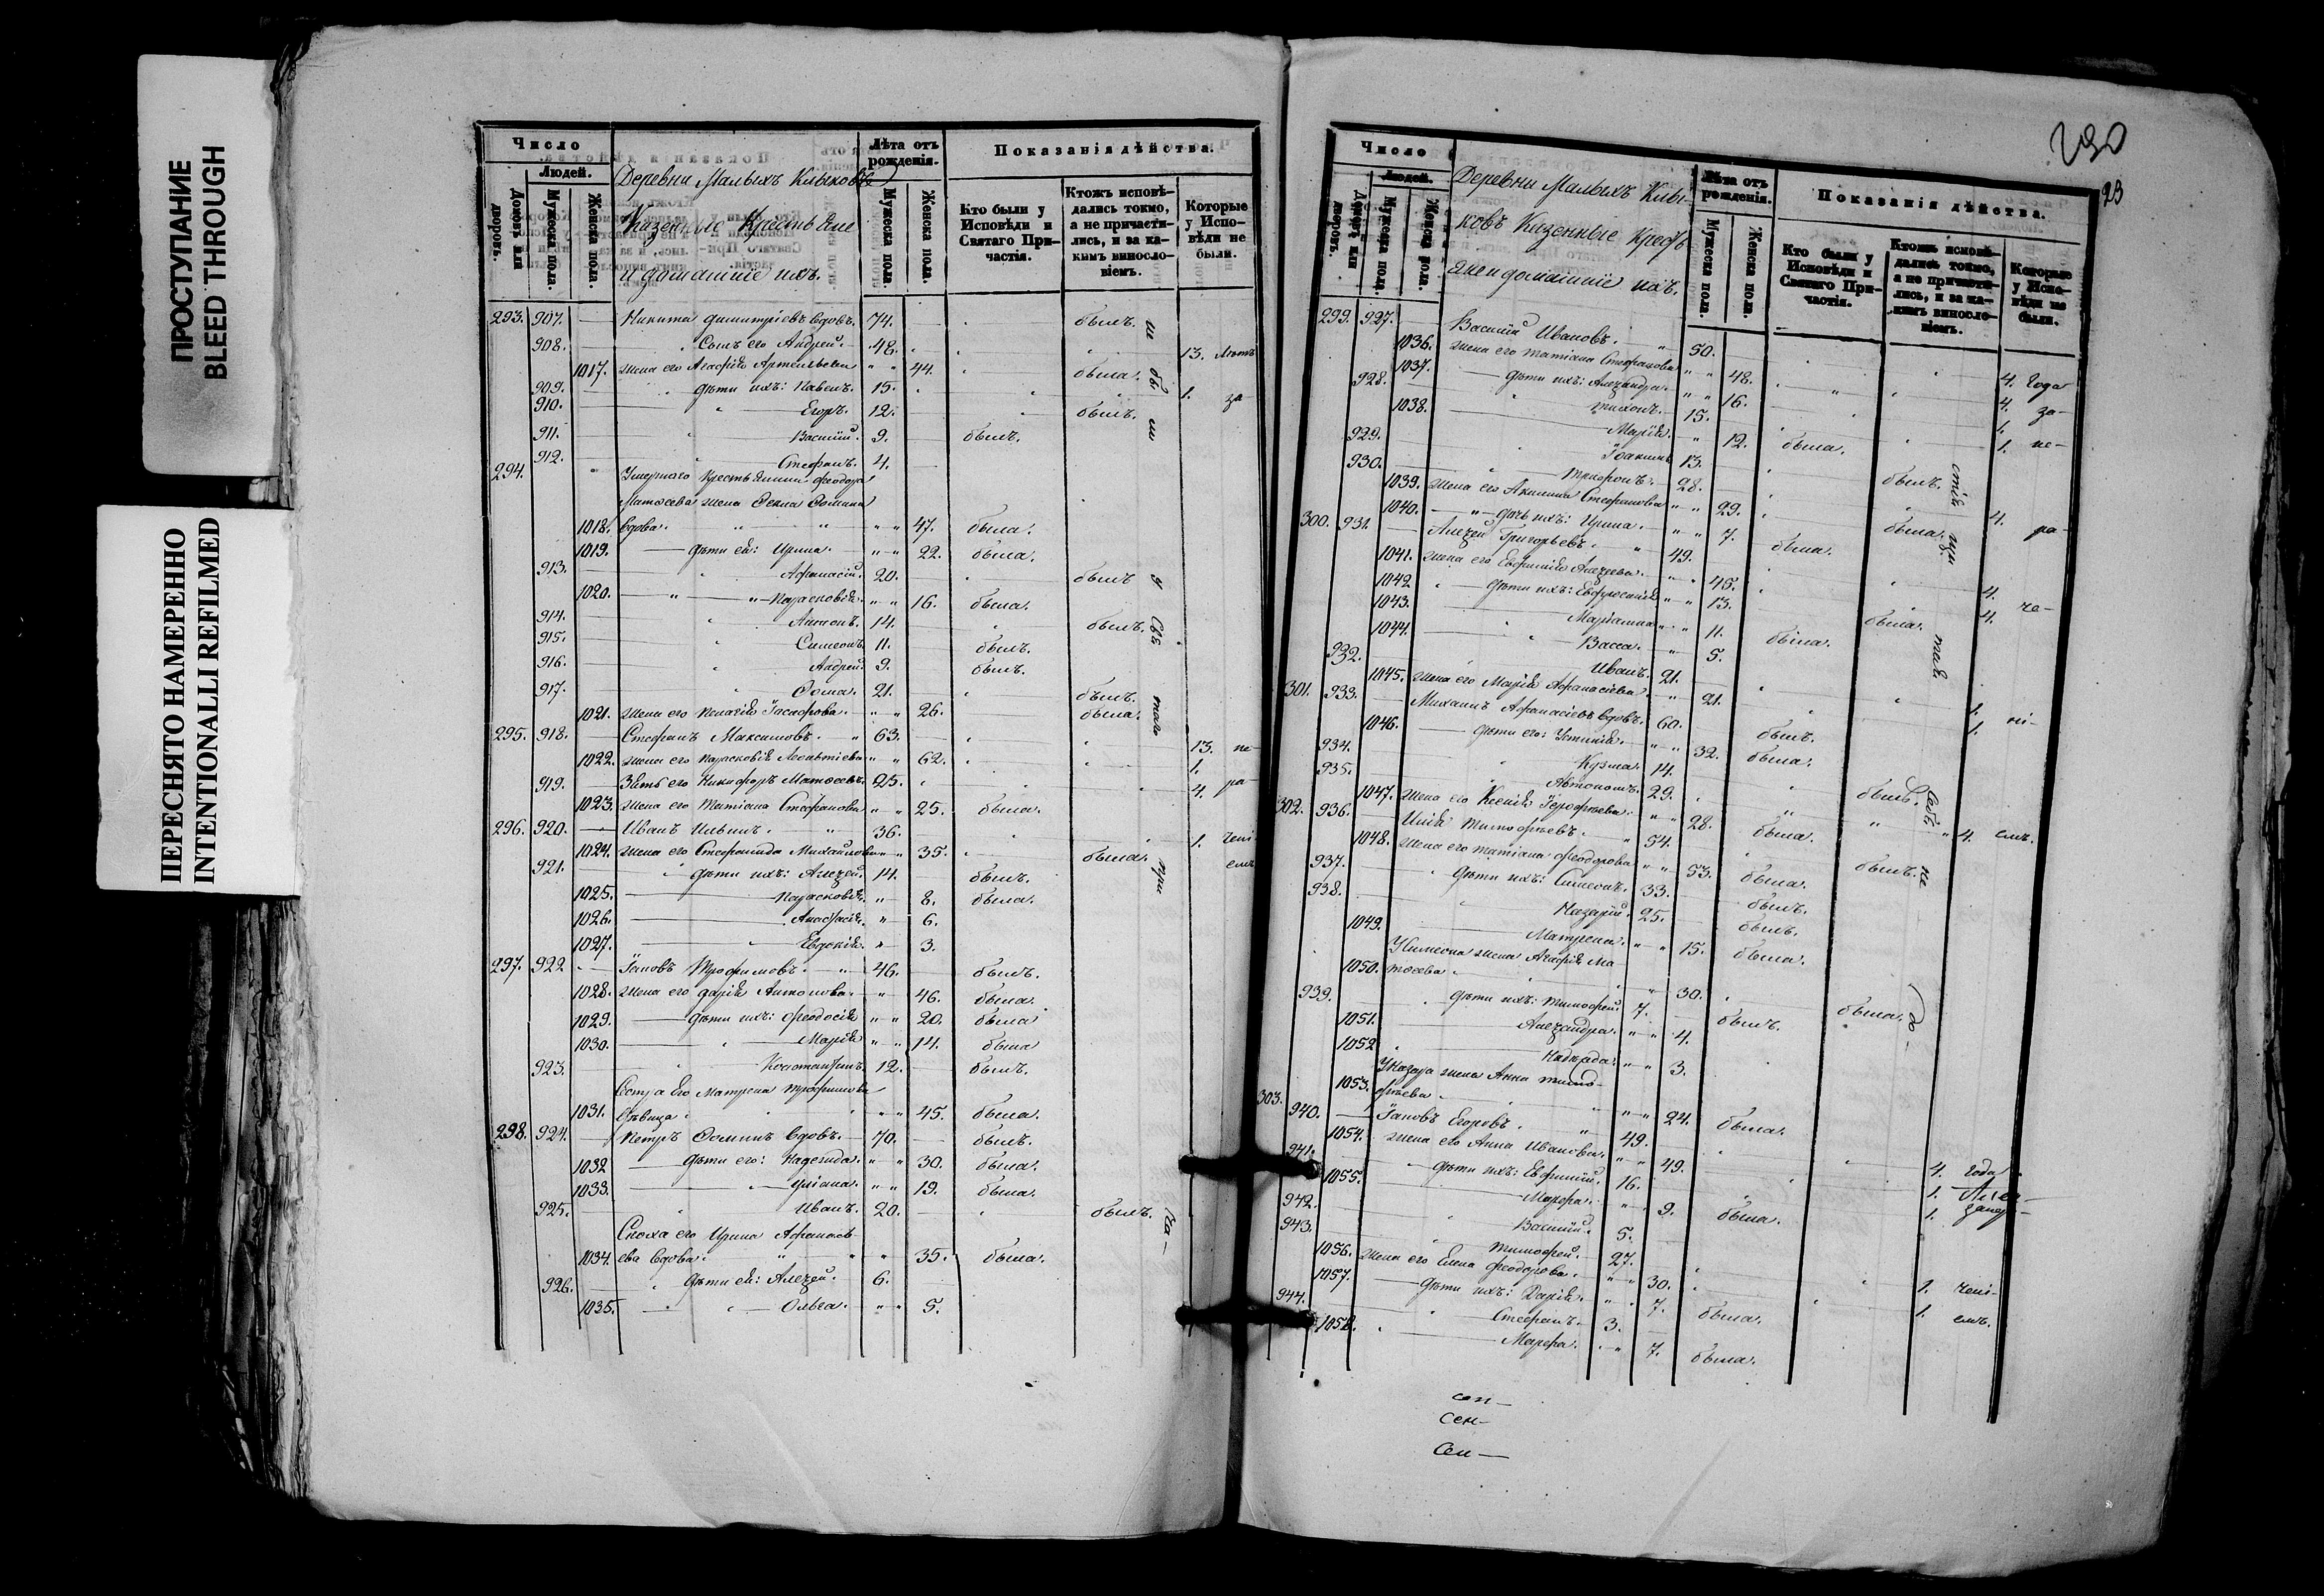 ПРОСТУПАНИЕ
BLEED THROUGH
ПЕРЕСНЯТО НАМЕРЕННО
INTENTIONALLI REFILMED
Число
Людей.
Домовъ или дворовъ.
Мужеска пола.
Женска пола.
Деревни Малыхъ Клыковъ
Казенные Крестьяне
и домашніе ихъ.
Лѣта отъ рожденія.
Мужеска пола.
Женска пола.
Показанія дѣйства.
Кто были у Исповѣди и Святаго Причастія.
Ктожъ исповѣдались токмо, а не причастились, и за какимъ винословіемъ.
Которые у Исповѣди не были.
293. 907. Никита Димитріевъ вдовъ. 74. былъ.
908. Сынъ его Андрей. 48. 13. лѣтъ
1017. жена его Агафія 44. была.
909. дѣти ихъ: Павелъ. 15. 1. за
910. Егоръ. 12. былъ.
911. Василій. 9. былъ.
912. Стефанъ. 4.
294. Умершаго Крестьянина Феодора
Матѳеева жена Ѳекла Ѳомина
1018. вдова. 47. была.
1019. дѣти ей: Ирина. 22. была.
913. Афанасій. 20. былъ
1020. Парасковія. 16. была.
914. Антонъ. 14. былъ.
915. Симеонъ. 11. былъ.
916. Андрей. 9. былъ.
917. Ѳома. 21. былъ.
1021. жена его Пелагія Іасафова. 26. была.
295. 918. Стефанъ Максимовъ. 63. 13. не
1022. жена его Парасковія Леонтіева 62. 1.
919. Зять его Никифоръ Матѳеевъ. 25. 4. ра
1023. жена его Татіана Стефанова 25. была.
296. 920. Иванъ Ильинъ. 36. 1. чені
1024. жена его Стефанида Михайлова 35. была. емъ
921. дѣти ихъ: Алеѯей. 14. былъ.
1025. Парасковія. 8. была.
1026. Анастасія. 6.
1027. Евдокія. 3.
297. 922 Іаковъ Трофимовъ. 46. былъ.
1028. жена его Дарія Антонова. 46. была.
1029. дѣти ихъ: Феодосія 20. была
1030. Марія 14. была
923. Констант[инъ]. 12. былъ.
Сестра Его Матрена Трофимова
1031. дѣвица. 45. была.
298. 924. Петръ Ѳоминъ вдовъ. 70. былъ.
1032 дѣти его: Надежда. 30. была.
1033. Уліана. 19. была.
925. Иванъ. 20. былъ.
Сноха его Ирина Афанась-
1034. ева вдова. 35. была.
926. дѣти ей: Алеѯей. 6.
1035. Ольга. 5.
23
Число
Людей.
Домовъ или дворовъ.
Мужеска пола.
Женска пола.
Деревни Малыхъ Клы-
ковъ Казенные Кресть
яне и домашніе ихъ.
Лѣта отъ рожденія.
Мужеска пола.
Женска пола.
Показанія дѣйства.
Кто были у Исповѣди и Святаго Причастія.
Ктожъ исповѣдались токмо, а не причастились, и за какимъ винословіемъ.
Которые у Исповѣди не были.
299. 927. Василій Ивановъ. 50. 4. года
1036. жена его Татіана Стефанова 48. 4. за-
1037. дѣти ихъ: Алеѯандра. 16. 1.
928. Тихонъ. 15. 1. не-
1038. Марія. 12. была.
929. Іоакимъ 13. былъ.
930. Трифонъ. 28. 4.
1039. жена его Акилина Стефанова 29. была. ра-
1040. дочь ихъ: Ирина. 7. была.
300. 931. Алеѯей Григорьевъ. 49. 4.
1041. жена его Евфимія Алеѯеева. 45. 4. че-
1042 дѣти ихъ: Евфросинія 13. была.
1043. Маріамна. 11. была.
1044. Васса. 5.
932. Иванъ. 21. 1. ні-
1045. жена его Марія Афанасіева. 21. 1.
301. 933. Михаилъ Афанасіевъ вдовъ. 60. былъ.
1046. дѣти его: Устинія. 32. была.
934. Кузма. 14. былъ.
935. Автономъ. 29. 4. емъ.
1047. жена его Ксенія Іерофѣева. 28. была.
302. 936. Илія Тимофѣевъ. 54. былъ.
1048. жена его Татіана Феодорова 53. была.
937. дѣти ихъ: Симеонъ. 33. былъ.
938. Назарій. 25. былъ.
1049. Матрена. 15. была.
У Симеона жена Агафія Ма-
1050. тѳеева. 30. была.
939. дѣти ихъ: Тимофей 7. былъ.
1051. Алеѯандра. 4.
1052 Надежда. 3.
У Назара жена Анна Тимо-
1053. фѣева 24. была.
303. 940. Іаковъ Егоровъ. 49. 4. года
1054. жена его Анна Иванова. 49. 1.
941. дѣти ихъ: Евфимій. 16. 1.
1055. Марфа. 9. была.
942. Василій. 5.
943. Тимофей. 27. 1. чені-
1056. жена его Елена Феодорова. 30. 1. емъ.
1057. дѣти ихъ: Дарія. 7. была.
944. Стефанъ. 3.
1058. Марфа. 7. была.